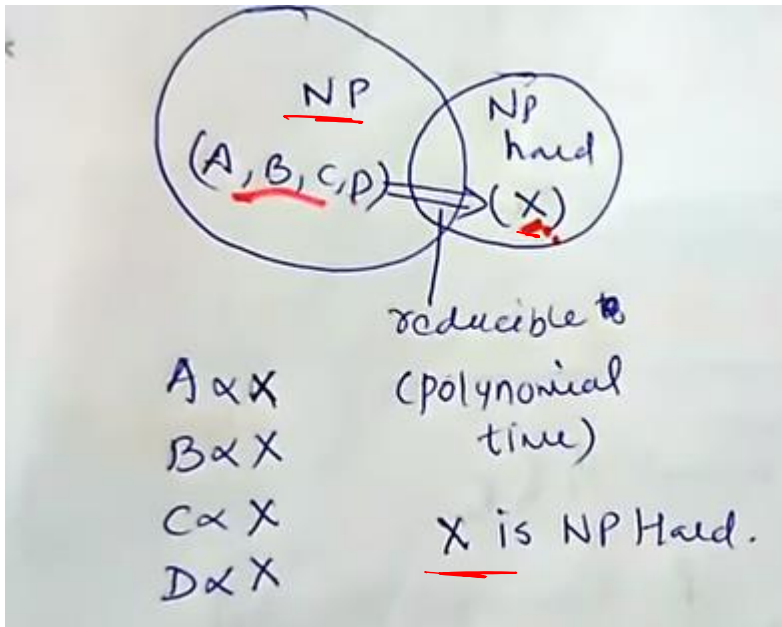 NP
NP
hard
(A, B, C, D)
(X)
reducible to
(polynomial
time)
A ∝ X
B ∝ X
C ∝ X
D ∝ X
X is NP Hard.